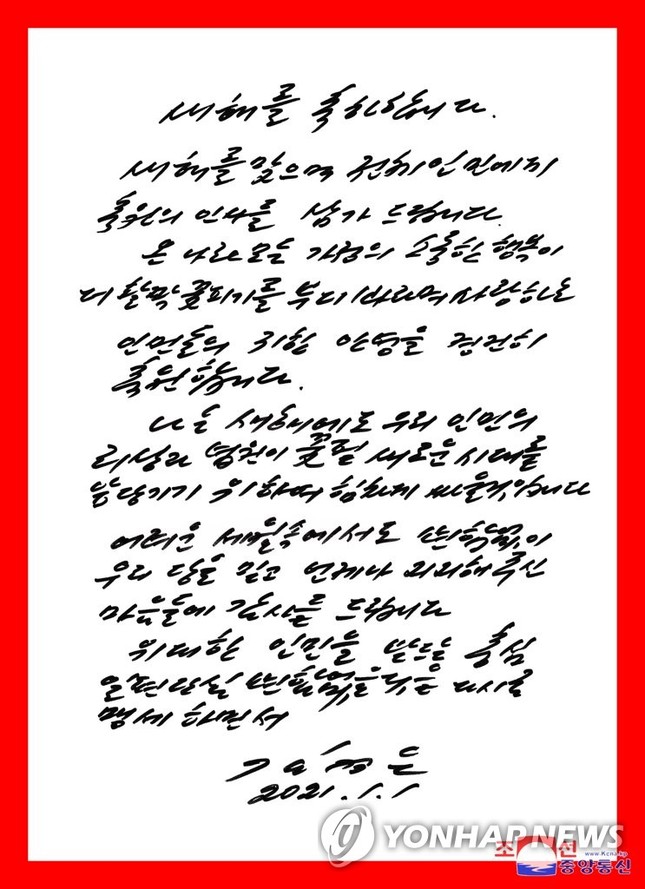 새해를 축하합니다.
새해를 맞으며 전체 인민에게
축원의 인사를 삼가 드립니다.
온 나라 모든 가정의 소중한 행복이
더 활짝 꽃피기를 부디 바라며 사랑하는
인민들의 귀한 안녕을 경건히
축원합니다.
나는 새해에도 우리 인민의
리상과 념원이 꽃필 새로운 시대를
앞당기기 위하여 힘차게 싸울것입니다
어려운 세월속에서도 변함없이
우리 당을 믿고 언제나 지지해주신
마음들에 감사를 드립니다
위대한 인민을 받드는 충심
일편단심 변함없을것을 다시금
맹세하면서
김정은
2021.1.1
YONHAP NEWS
조선
www.kcna.kp
중앙통신